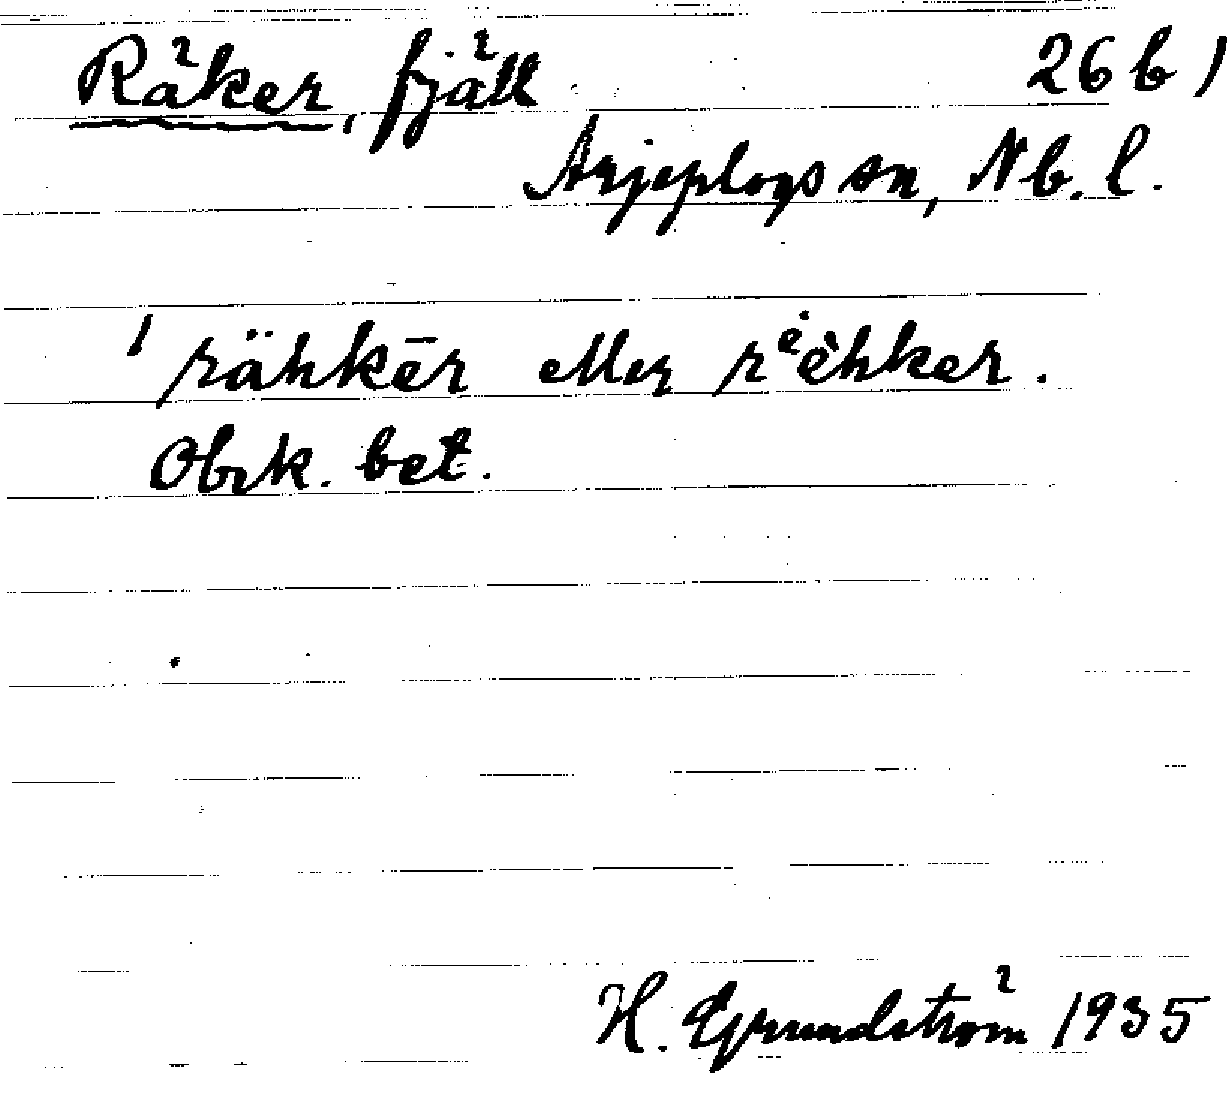 Räker, fjäll 26 b 1
Arjeplogs sn, Nb. l.
' rähkēr eller rᵉèhker.
Obrk. bet.
H. Grundström 1935